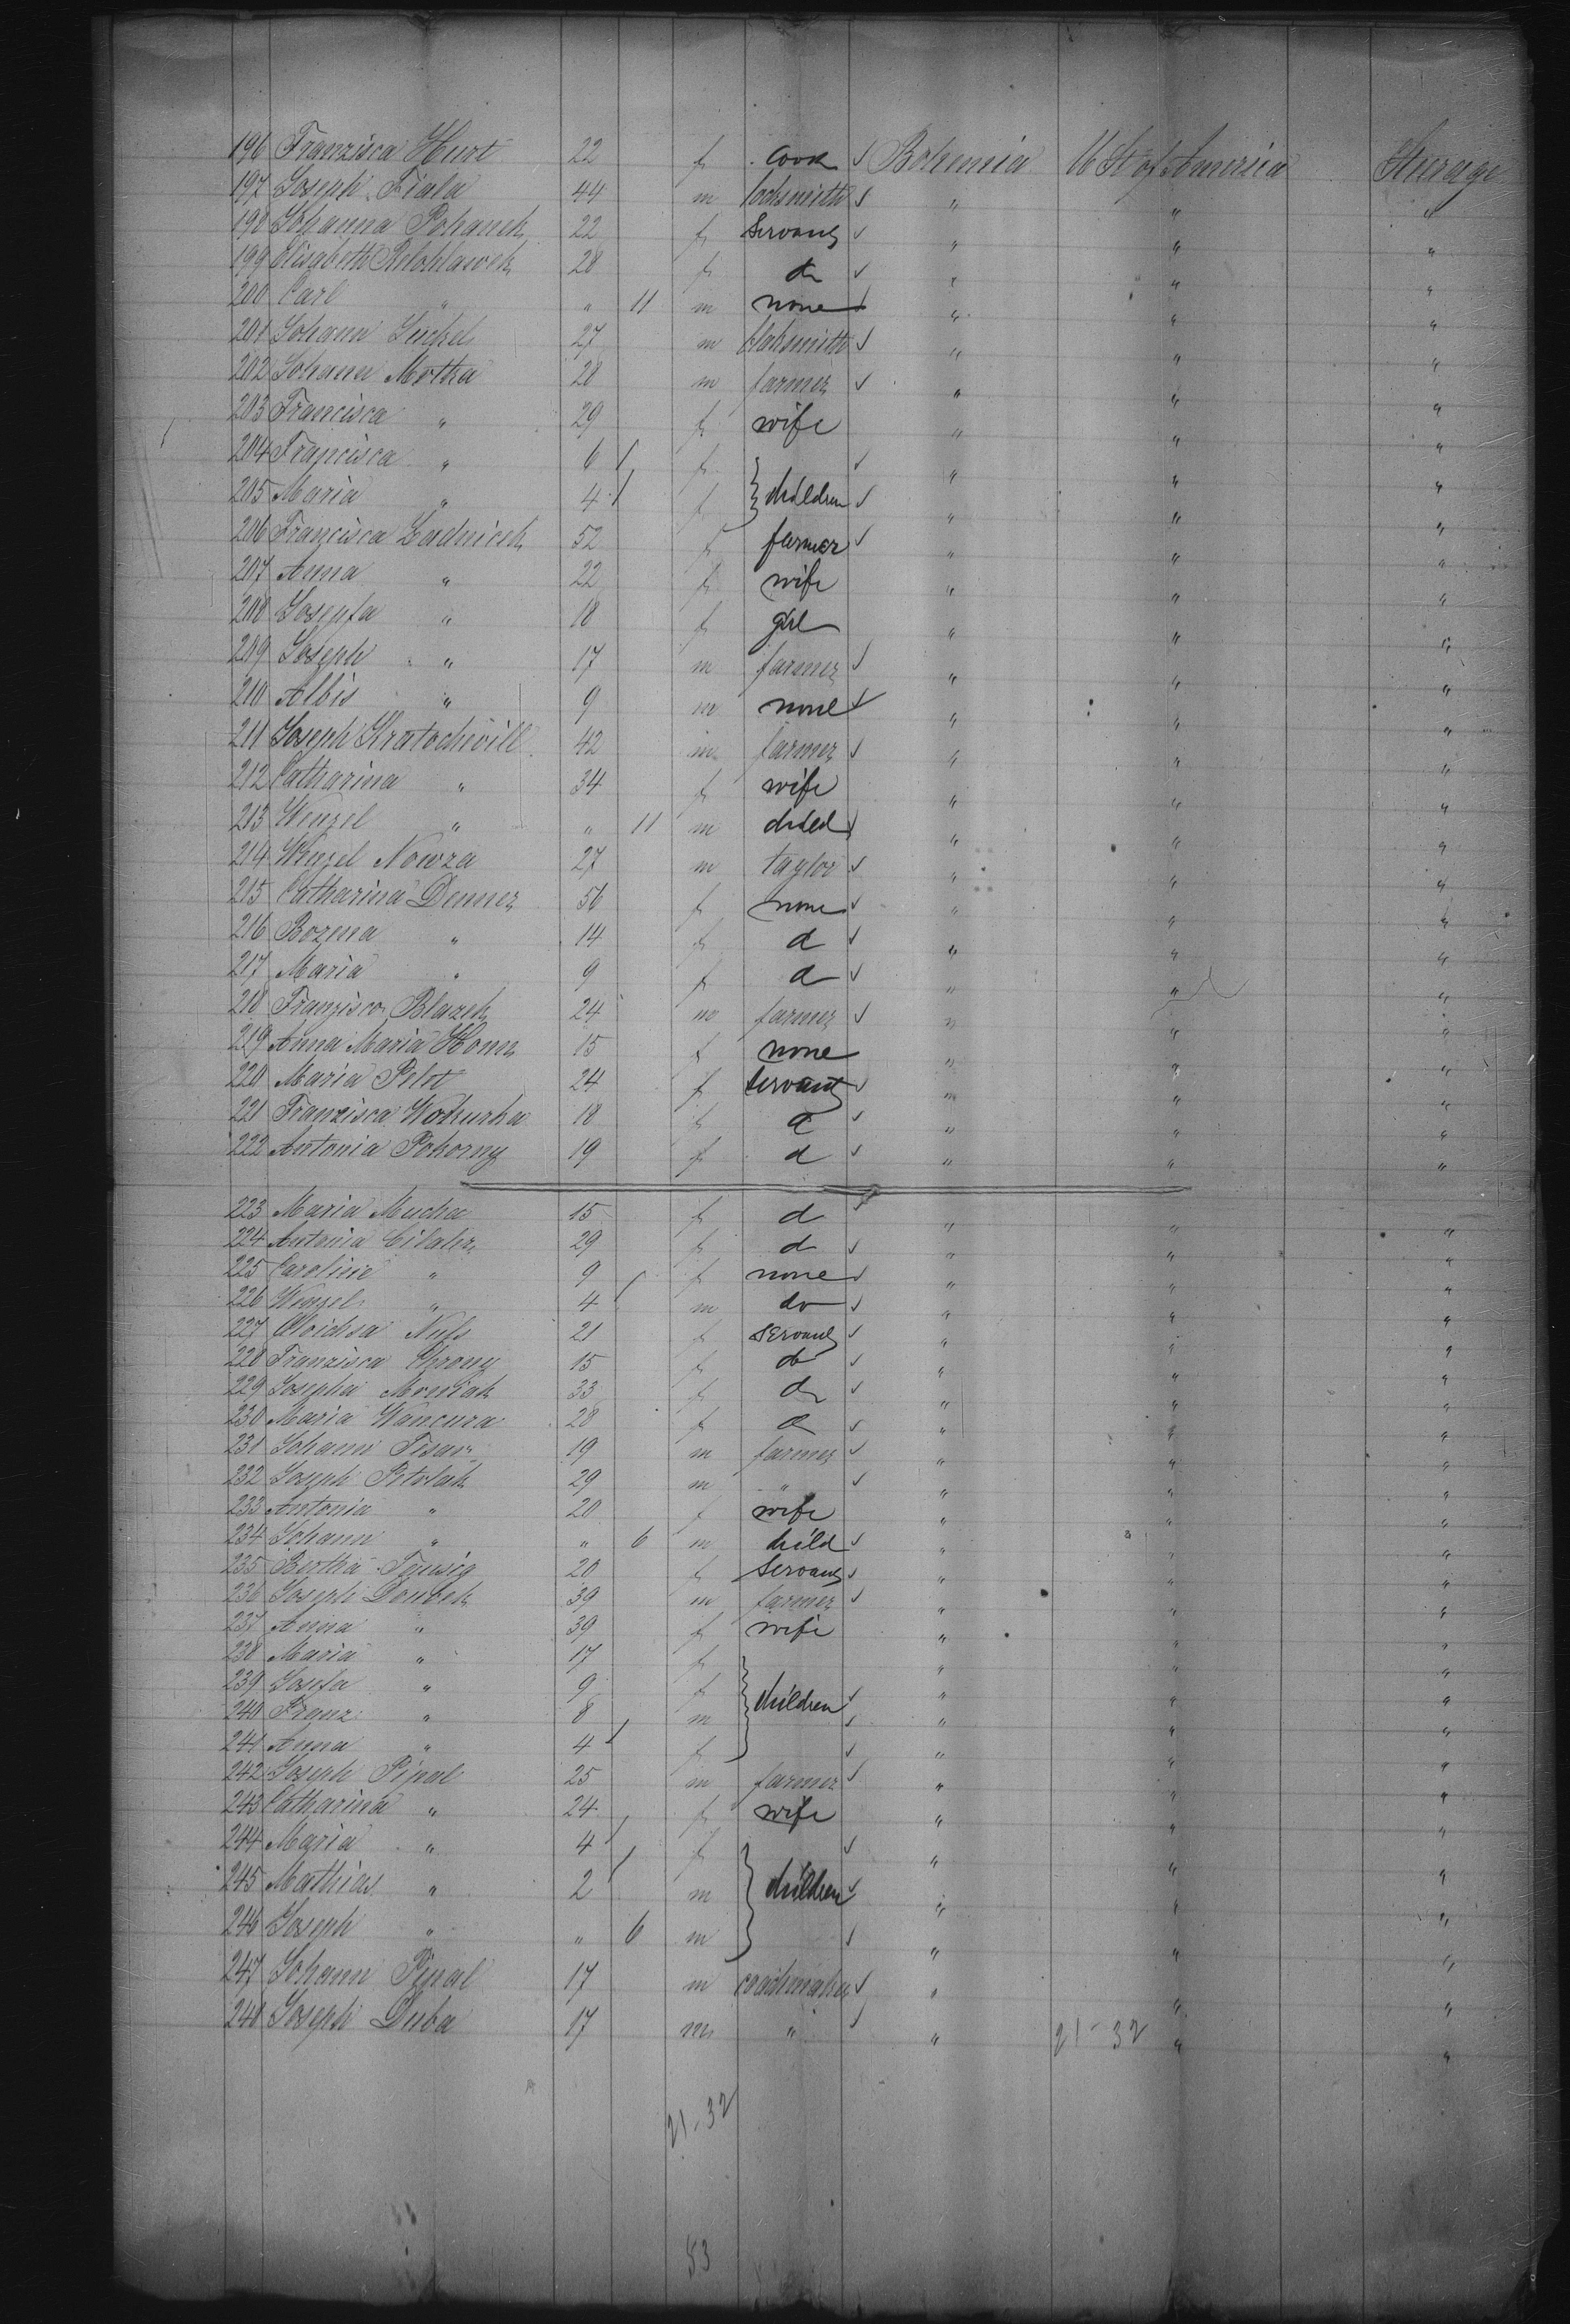 196 Franzisca Hurt 22 f cook ✓ Bohemia U St of America Steerage
197 Joseph Fiala 44 m locksmith ✓ " " "
198 Johanna Pohanek 22 f Servant ✓ " " "
199 Elisabeth 28 f do ✓ " " "
200 Carl " " 11 m none ✓ " " "
201 Johann 27 m blaksmith ✓ " " "
202 Johann Motka 28 m farmer ✓ " " "
203 Francisca " 29 f wife " " "
204 Francisca " 6 f ✓ " " "
205 Maria " 4 f } children ✓ " " "
206 Francisca Zadnicek 52 f farmer ✓ " " "
207 Anna " 22 f wife " " "
208 Josepfa " 18 f girl " " "
209 Joseph " 17 m farmer ✓ " " "
210 Albis " 9 m none ✓ " " "
211 Joseph Kratochwill 42 m farmer ✓ " " "
212 Catharina " 34 f wife " " "
213 Wenzel " " 11 m child ✓ " " "
214 Wenzel Nowza 27 m taylor ✓ " " "
215 Catharina Denner 56 f none ✓ " " "
216 Bozena " 14 f d ✓ " " "
217 Maria " 9 f d ✓ " " "
218 Franzisco Blazek 24 m farmer ✓ " " "
219 Anna Maria 15 f none " " "
220 Maria Pelet 24 f Servant ✓ " " "
221 Franzisca Wokurka 18 f d ✓ " " "
222 Antonia Pokorny 19 f d ✓ " " "
223 Maria Mucha 15 f d ✓ " " "
224 Antonia 29 f d ✓ " " "
225 Caroline " 9 f none ✓ " " "
226 Wenzel " 4 m do ✓ " " "
227 21 f Servant ✓ " " "
228 Franzisca 15 f do ✓ " " "
229 Josepha 33 f do ✓ " " "
230 Maria Wancura 28 f d ✓ " " "
231 Johann Tisar 19 m farmer ✓ " " "
232 Joseph 29 m " ✓ " " "
233 Antonia " 20 f wife " " "
234 Johann " " 6 m child ✓ " " "
235 Bertha 20 f Servant ✓ " " "
236 Joseph Doubek 39 m farmer ✓ " " "
237 Anna " 39 f wife " " "
238 Maria " 17 f " " "
239 Josefa " 9 f } children ✓ " " "
240 Franz " 8 m ✓ " " "
241 Anna " 4 f ✓ " " "
242 Joseph Pipal 25 m farmer ✓ " " "
243 Catharina " 24 f wife " " "
244 Maria " 4 f ✓ " " "
245 Mathias " 2 m } children ✓ " " "
246 Joseph " " 6 m ✓ " " "
247 Johann Pipal 17 m coachmaker ✓ " " "
248 Joseph Duba 17 m " ✓ " 21-32 " "
21-32
53